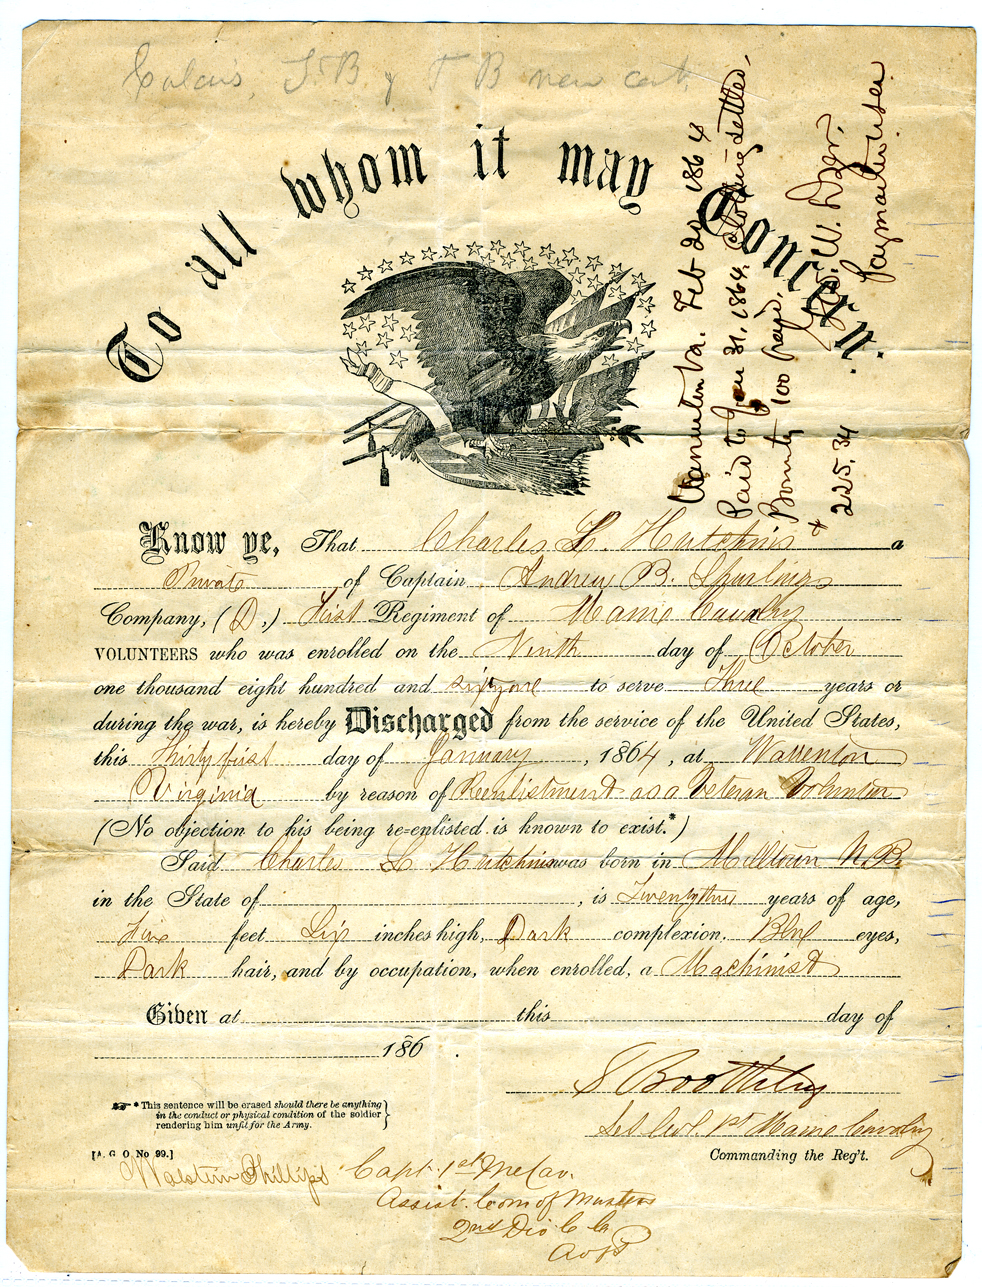 Calais, T. B. y T B new cert,
To all whom it may Concern.
Warrenton Va. Feb 20 1864
Paid to Jan 31. 1864. Clothing settled,
Bounty 100 paid.
$ 225.34
W.
Paymaster USA
Know ye, That Charles L. Hutchins a
Private of Captain Andrew B. Spurlings
Company, (D,) First Regiment of Maine Cavalry
VOLUNTEERS who was enrolled on the Ninth day of October
one thousand eight hundred and sixtyone to serve Three years or
during the war, is hereby Discharged from the service of the United States,
this Thirtyfirst day of January, 1864, at Warrenton
Virginia by reason of Reenlistment as a Veteran Volunteer
(No objection to his being re=enlisted is known to exist.*)
Said Charles L Hutchins was born in Milltown N.B.
in the State of , is Twentythree years of age,
Five feet Six inches high, Dark complexion, Blue eyes,
Dark hair, and by occupation, when enrolled, a Machinist
Given at this day of
186
S Boothby
Lt. Col. 1st Maine Cavalry
Commanding the Reg't.
☞ * This sentence will be erased should there be anything
in the conduct or physical condition of the soldier
rendering him unfit for the Army.
[A. G. O. No 99.]
Walstein Phillips Capt. 1st Me Cav.
Assist. Com of Musters
2nd Div C. C.
A of P